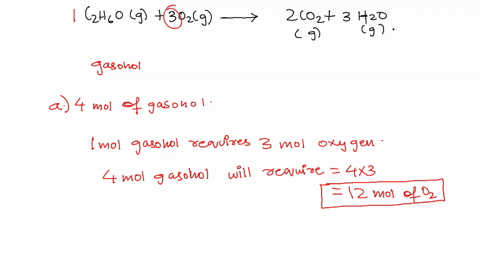 1 C2H6O (g) + 3O2(g) ⟶ 2CO2 + 3 H2O
(g) (g).
gasohol
a.) 4 mol of gasohol.
1mol gasohol requires 3 mol oxygen.
4 mol gasohol will require = 4x3
= 12 mol of O2